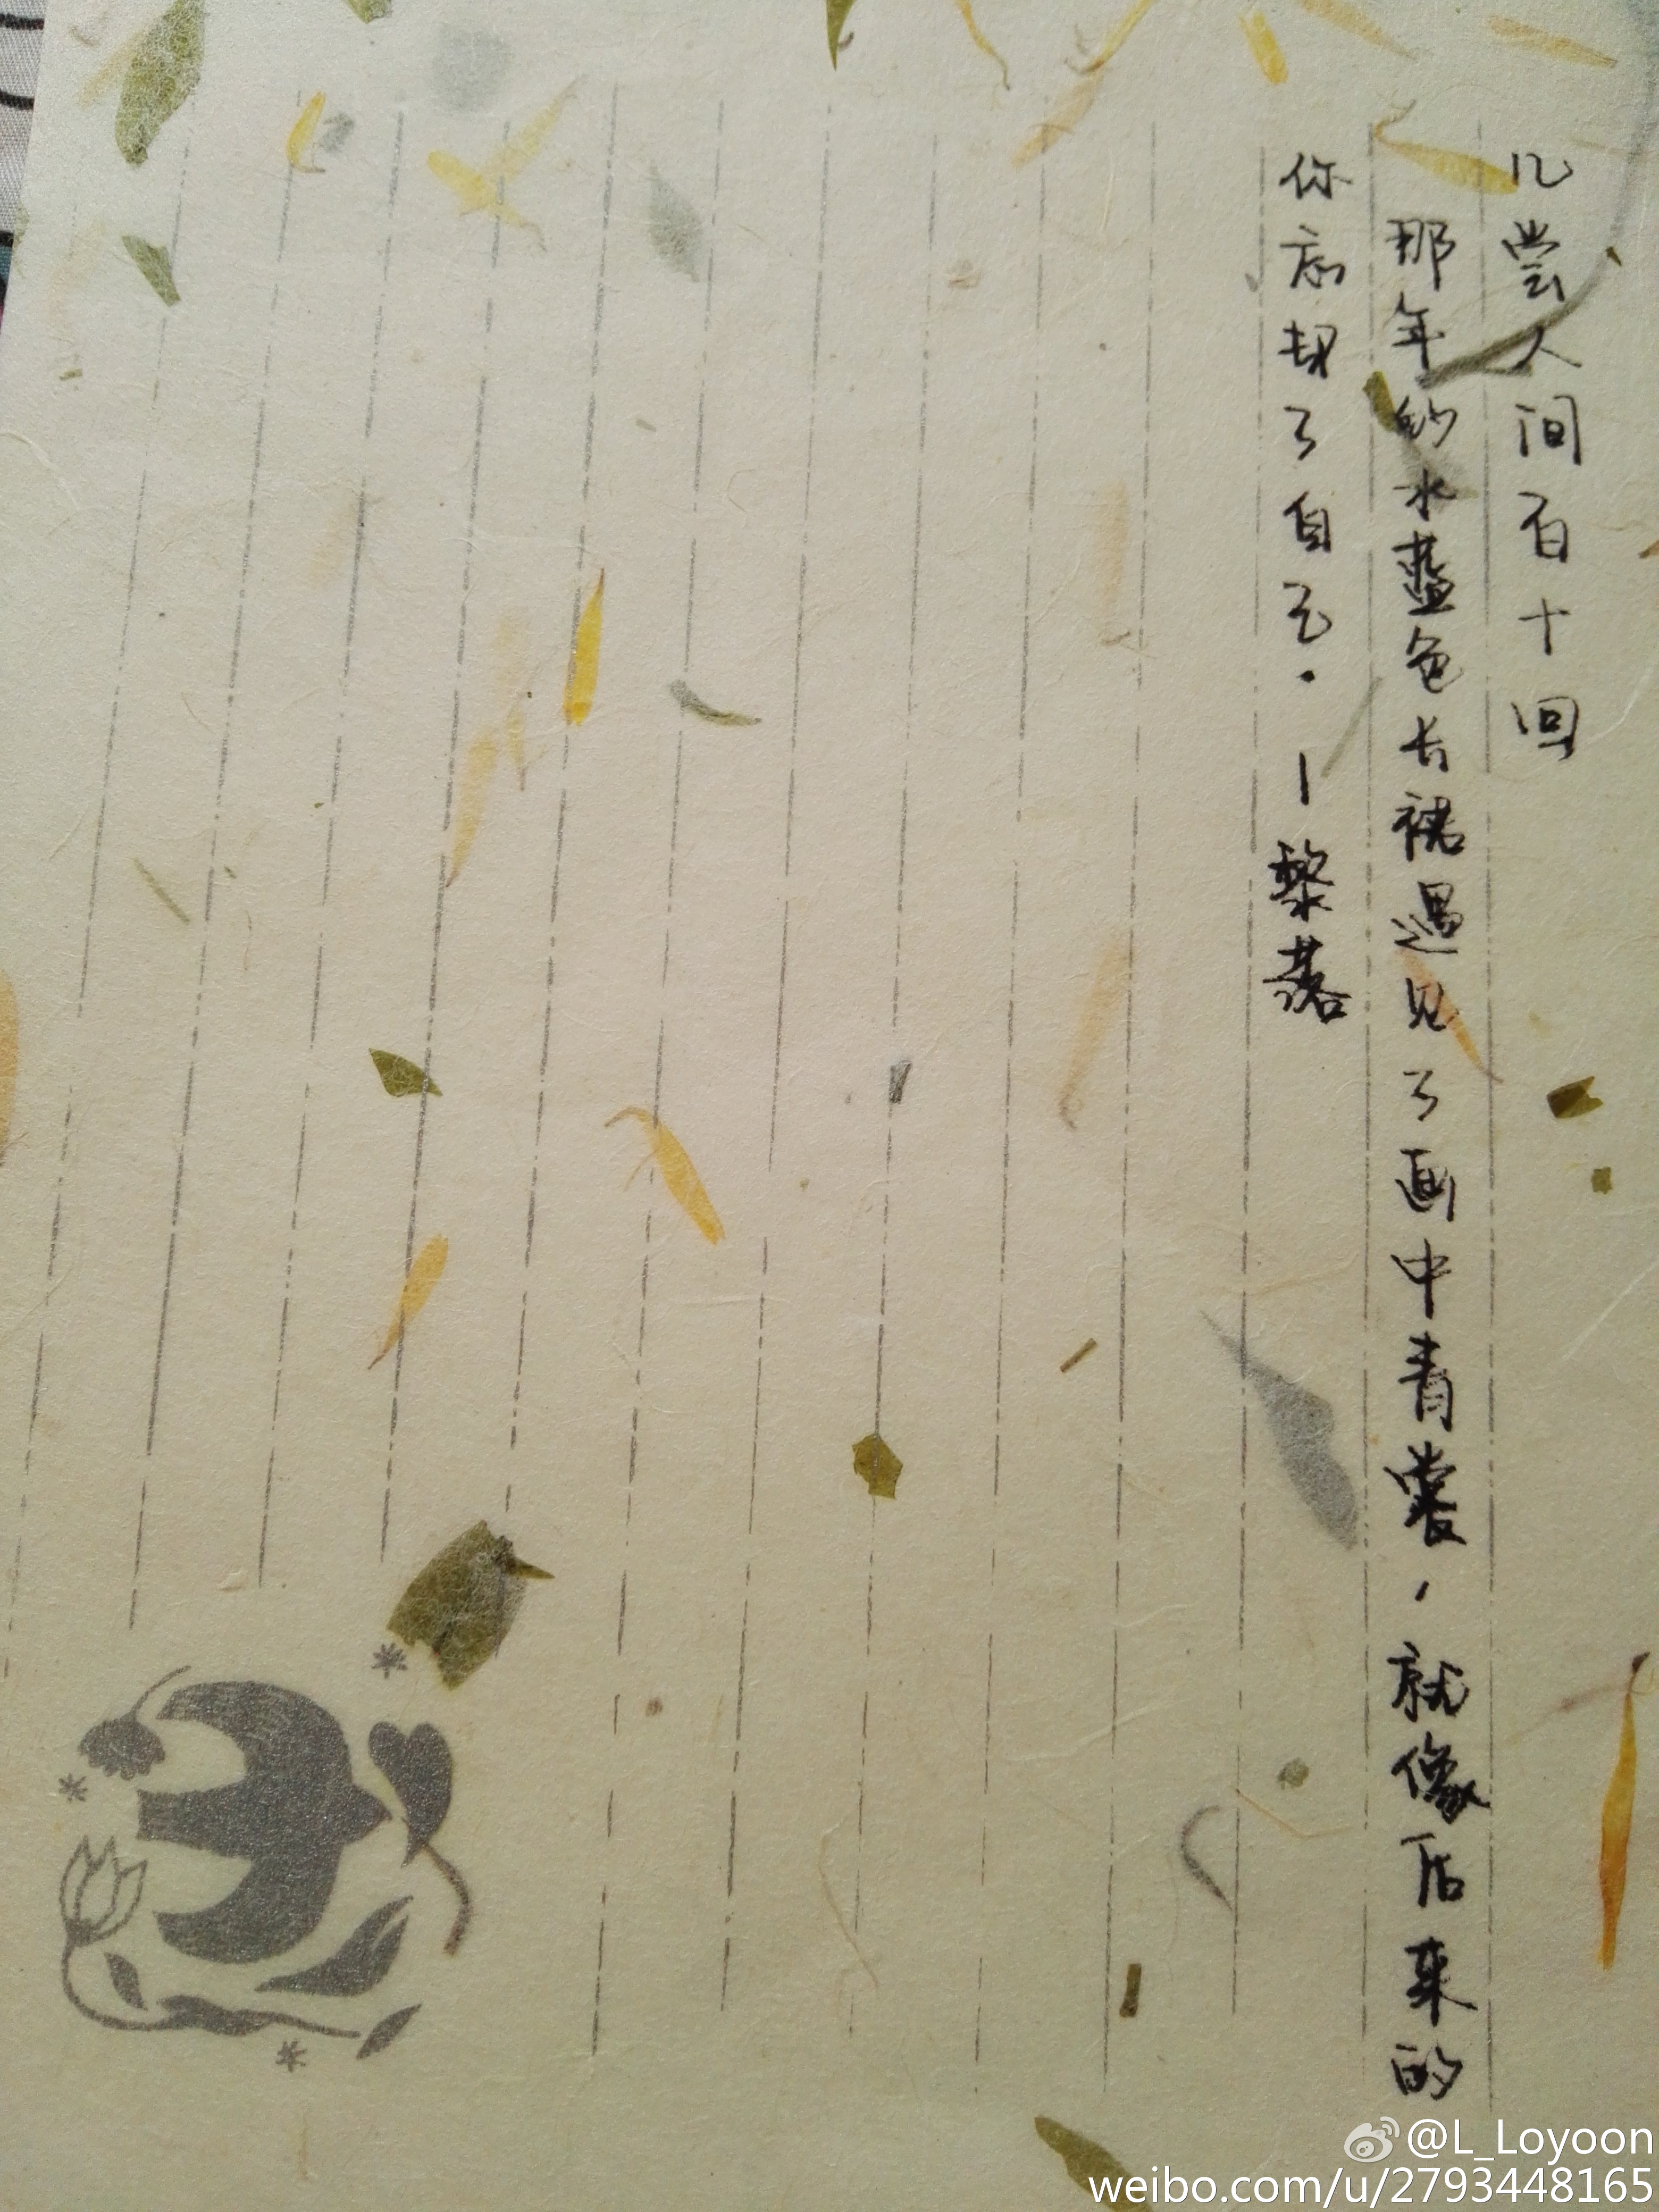 几尝人间百十回
那年的水蓝色长裙遇见了画中青裳，就像后来的
你忘却了自己.—黎落
@L_Loyoon
weibo.com/u/2793448165